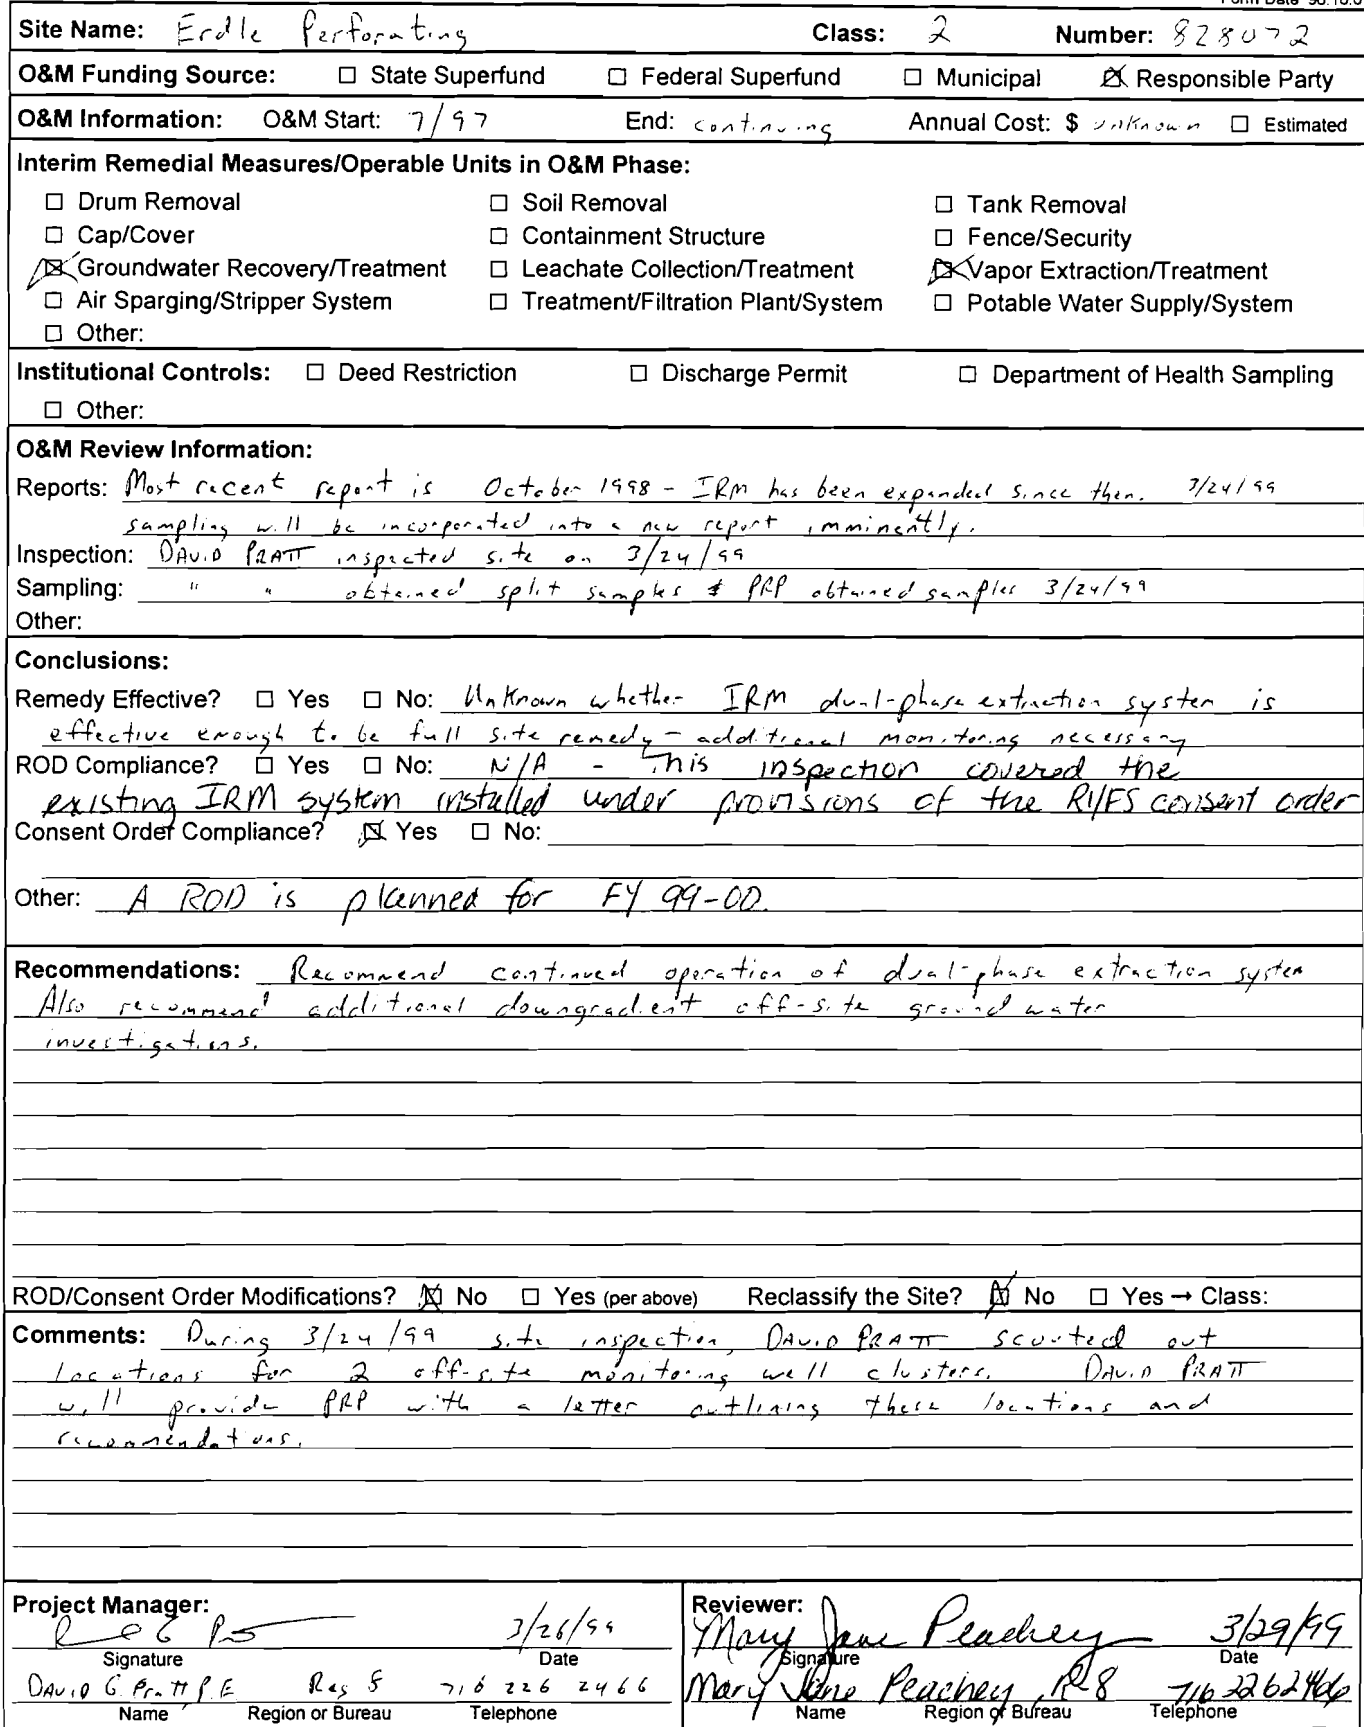 Site Name: Erdle Perforating Class: 2 Number: 828072
O&M Funding Source: ☐ State Superfund ☐ Federal Superfund ☐ Municipal ☒ Responsible Party
O&M Information: O&M Start: 7/97 End: continuing Annual Cost: $ unknown ☐ Estimated
Interim Remedial Measures/Operable Units in O&M Phase:
☐ Drum Removal ☐ Soil Removal ☐ Tank Removal
☐ Cap/Cover ☐ Containment Structure ☐ Fence/Security
☒ Groundwater Recovery/Treatment ☐ Leachate Collection/Treatment ☒ Vapor Extraction/Treatment
☐ Air Sparging/Stripper System ☐ Treatment/Filtration Plant/System ☐ Potable Water Supply/System
☐ Other:
Institutional Controls: ☐ Deed Restriction ☐ Discharge Permit ☐ Department of Health Sampling
☐ Other:
O&M Review Information:
Reports: Most recent report is October 1998 - IRM has been expanded since then. 3/24/99
sampling will be incorporated into a new report imminently.
Inspection: DAVID PRATT inspected site on 3/24/99
Sampling: " " obtained split samples & PRP obtained samples 3/24/99
Other:
Conclusions:
Remedy Effective? ☐ Yes ☐ No: Unknown whether IRM dual-phase extraction system is
effective enough to be full site remedy - additional monitoring necessary
ROD Compliance? ☐ Yes ☐ No: N/A - This inspection covered the
existing IRM system installed under provisions of the RI/FS consent order
Consent Order Compliance? ☒ Yes ☐ No:
Other: A ROD is planned for FY 99-00.
Recommendations: Recommend continued operation of dual-phase extraction system
Also recommend additional downgradient off-site ground water
investigations.
ROD/Consent Order Modifications? ☒ No ☐ Yes (per above) Reclassify the Site? ☒ No ☐ Yes → Class:
Comments: During 3/24/99 site inspection, DAVID PRATT scouted out
locations for 2 off-site monitoring well clusters. DAVID PRATT
will provide PRP with a letter outlining these locations and
recommendations.
Project Manager: Reviewer:
3/26/99 Mary Jane Peachey 3/29/99
Signature Date Signature Date
DAVID G. Pratt P.E Reg 8 716 226 2466 Mary Jane Peachey, R8 716 226 2466
Name Region or Bureau Telephone Name Region of Bureau Telephone